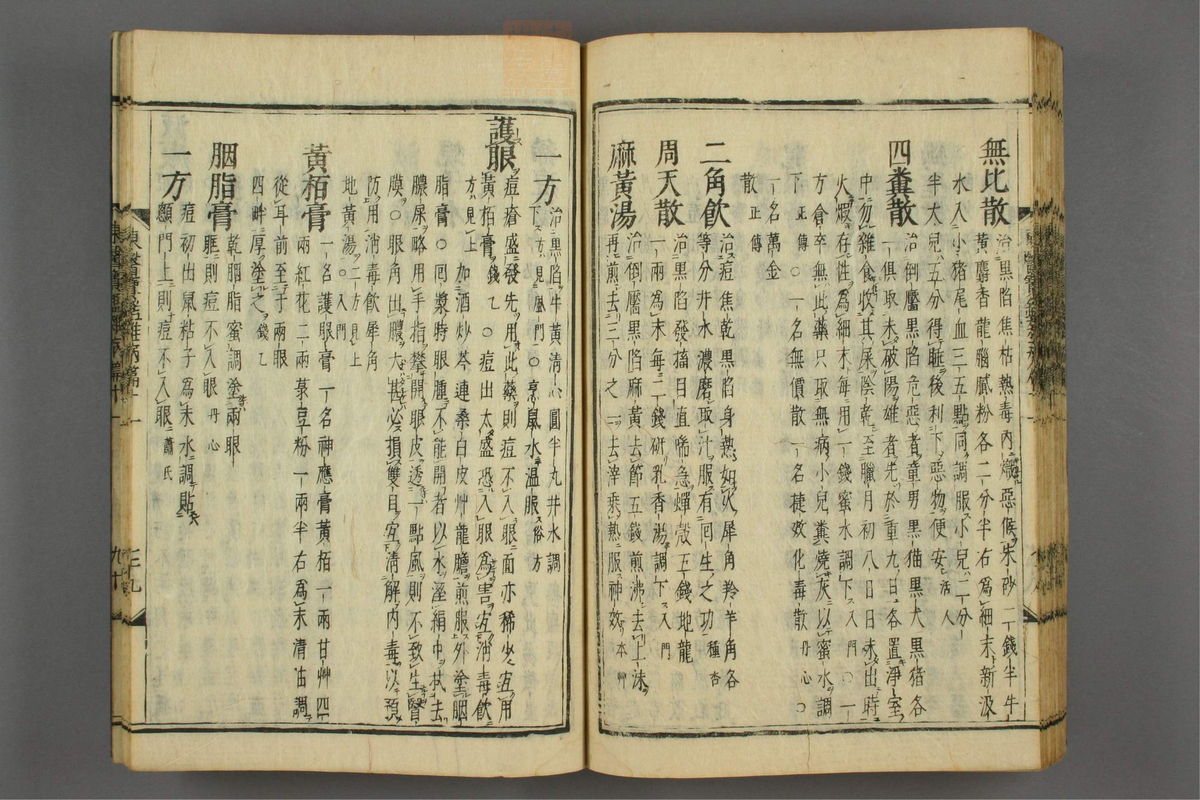 無比散 治黑陷焦枯熱毒內熾惡候朱砂二錢半牛
黃麝香龍腦膩粉各二分半右爲細末新汲
水入小猪尾血三五點同調服小兒二分
半大兒五分得睡後利下惡物便安 活人
四糞散 治倒黶黑陷危惡者童男黑猫黑犬黑猪各
一俱取未破陽雄者先於重九日各置淨室
中勿雜食收其屎陰乾至臘月初八日日未出時
火煆存性爲細末每用一錢蜜水調下 入門 ○一
方倉卒無此藥只取無病小兒糞燒灰以蜜水調
下 正傳 ○一名無價散一名捷效化毒散 丹心 ○
一名萬金
散 正傳
二角飮 治痘焦乾黑陷身熱如火犀角羚羊角各
等分井水濃磨取汁服有回生之功 種杏
周天散 治黑陷發搐目直喘急蟬殼五錢地龍
一兩爲末每二錢硏乳香湯調下 入門
麻黃湯 治倒黶黑陷麻黃去節五錢煎沸去上沫
再煎去三分之一去滓乘熱服神效 本艸
一方 治黑陷牛黃淸心圓半丸井水調
下 方見風門 ○烹鼠水溫服 俗方
護眼 痘瘡盛發先用此藥則痘不入眼面亦稀少宜用
黃栢膏 錢乙 ○痘出太盛恐入眼爲害宜消毒飮
方見上 加酒炒芩連桑白皮艸龍膽煎服外塗胭
脂膏○回漿時眼腫不能開者以水溼絹巾拭去
膿屎略用手指攀開眼皮透一點風則不致生瞖
膜○眼角出膿大甚必損雙目宜淸解內毒以預
防用消毒飮犀角
地黃湯 二方見上 ○入門
黃栢膏 一名護眼膏一名神應膏黃栢一兩甘艸四
兩紅花二兩菉豆粉一兩半右爲末淸油調
從耳前至于兩眼
四畔厚塗之 錢乙
胭脂膏 乾胭脂蜜調塗兩眼
眶則痘不入眼 丹心
一方 痘初出鼠粘子爲末水調貼
顖門上則痘不入眼 蕭氏